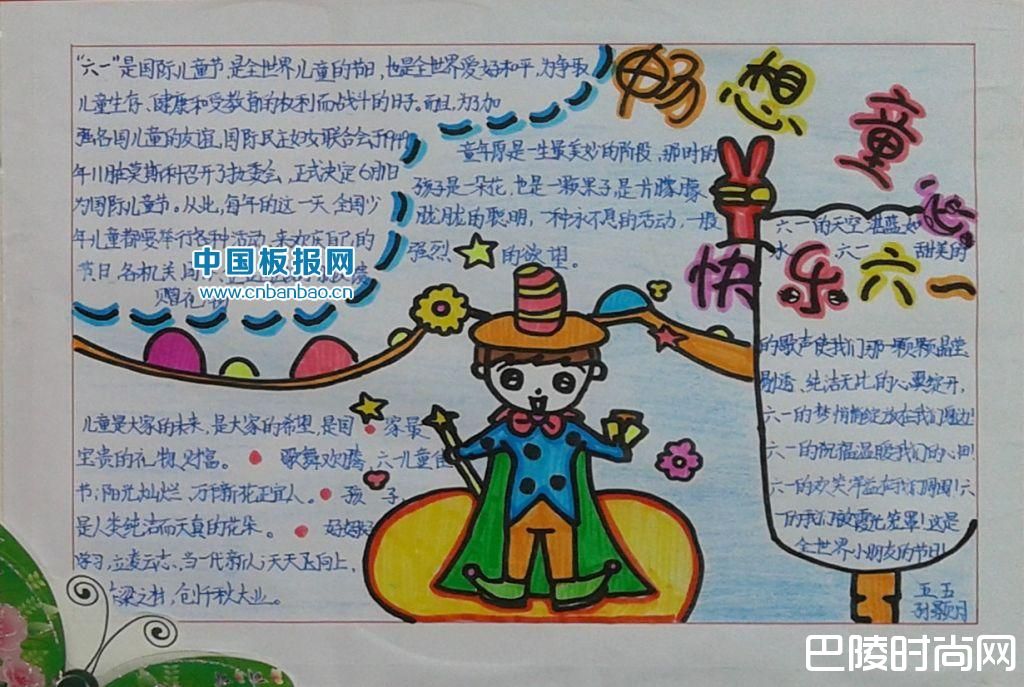 畅想童心
快乐六一
"六一"是国际儿童节,是全世界儿童的节日,也是全世界爱好和平,为争取
儿童生存、健康和受教育的权利而战斗的日子。而且,为了加
强各国儿童的友谊,国际民主妇女联合会于1949
年11月在莫斯科召开了执委会,正式决定6月1日
为国际儿童节。从此,每年的这一天,全国少
年儿童都要举行各种活动,来欢庆自己的
节日,各机关
中国板报网
www.cnbanbao.cn
童年原是一生最美妙的阶段,那时的
孩子是一朵花,也是一颗果子,是片朦朦
胧胧的聪明,一种永不息的活动,一股
强烈的欲望。
六一的天空湛蓝如
水 六一 甜美的
的歌声使我们那一颗颗晶莹
剔透、纯洁无比的心翼绽开,
六一的梦悄悄绽放在我们身边!
六一的祝福温暖我们的心田!
六一的欢笑洋溢在我们周围!六
一的我们被霞光笼罩!这是
全世界小朋友的节日!
儿童是大家的未来,是大家的希望,是国家最
宝贵的礼物、财富。歌舞欢腾,六一儿童佳
节;阳光灿烂,万千新花正宜人。孩子
是人类纯洁而天真的花朵。好好
学习,立凌云志,当一代新人;天天向上,
梁之材,创千秋大业。
五 五
巴陵时尚网